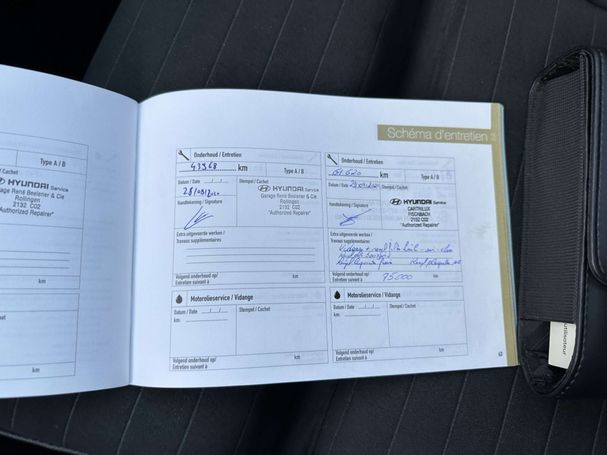 Type A / B
/ Cachet
HYUNDAI Service
Garage René Beeleter & Cie
Rollingen
2132 C02
"Authorized Repairer"
/ Cachet
km
Schéma d'entretien
Onderhoud / Entretien
43968 km
Type A / B
Datum / Date
Stempel / Cachet
HYUNDAI Service
Garage René Beeleter & Cie
Rollingen
2132 C02
"Authorized Repairer"
Handtekening / Signature
Extra uitgevoerde werken /
Travaux supplémentaires
Volgend onderhoud op/
Entretien suivant à
km
Onderhoud / Entretien
km
Type A / B
Datum / Date
Stempel / Cachet
HYUNDAI Service
CARTRILUX
FISCHBACH
2132 C02
"Authorized Repairer"
Handtekening / Signature
Extra uitgevoerde werken /
Travaux supplémentaires
Volgend onderhoud op/
Entretien suivant à
75.000 km
Motorolieservice / Vidange
Datum / Date
Stempel / Cachet
km
Volgend onderhoud op/
Entretien suivant à
km
Motorolieservice / Vidange
Datum / Date
Stempel / Cachet
km
Volgend onderhoud op/
Entretien suivant à
km
utilisateur